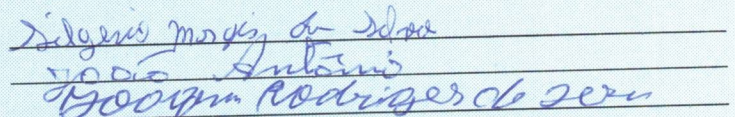 Silgerio Morais da Silva
João Antônio
Joaquim Rodriges de